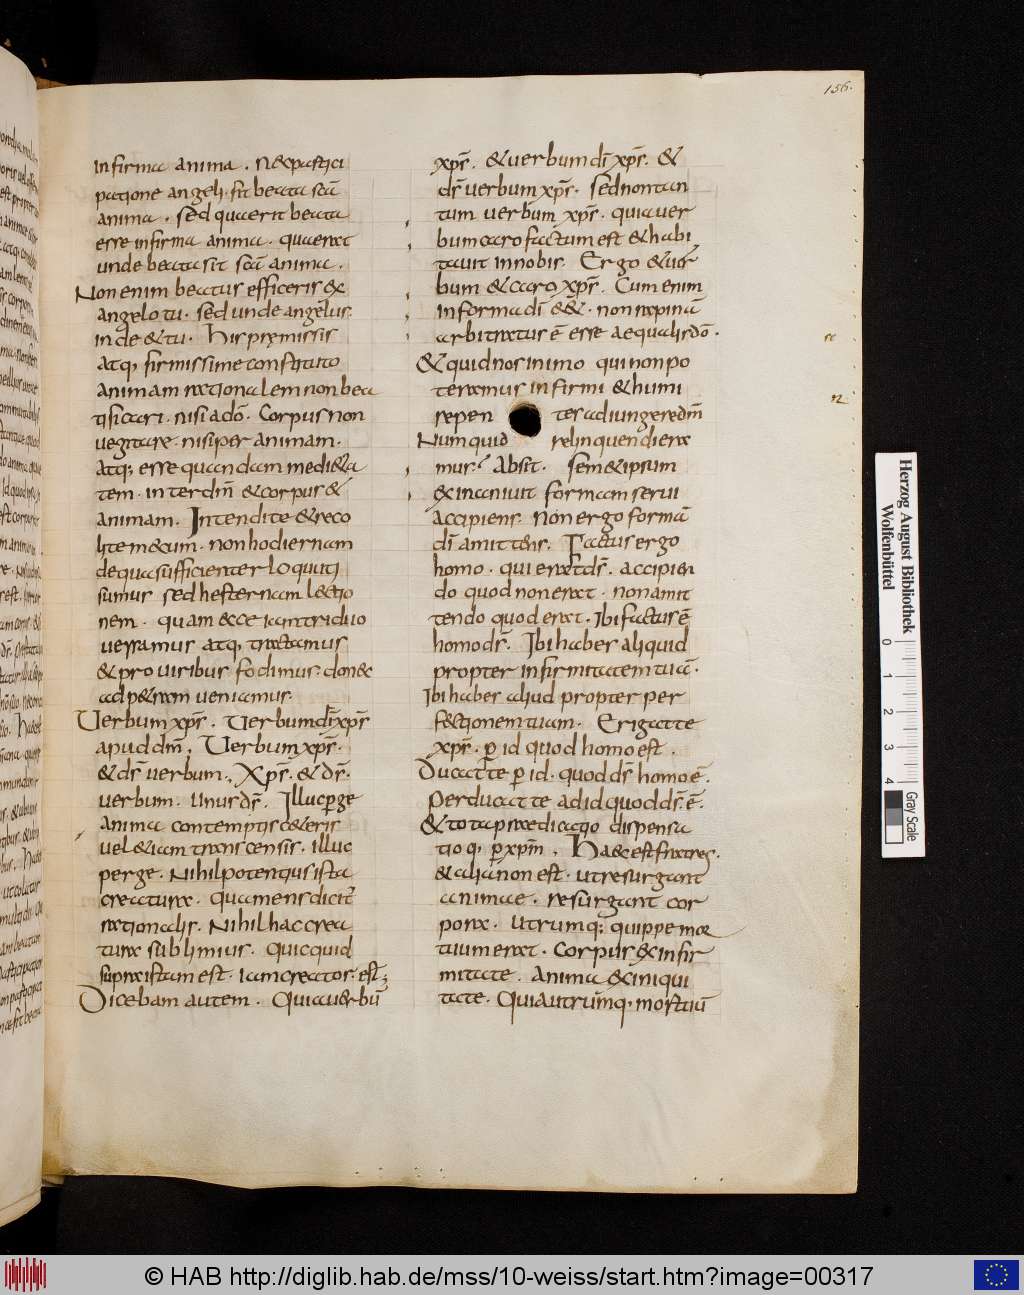 156.
infirma anima. nec partici
patione angeli. fit beata scā
anima. sed quaerit beata
esse infirma anima. quaerat
unde beata sit scā anima.
Non enim beatus efficeris ex
angelo tu. sed unde angelus.
inde & tu. His praemissis
atq; firmissime constituto
animam rationalem non bea
tificari. nisi a dō. Corpus non
vegitare. nisi per animam.
atq; esse quandam medi&a
tem. inter dm̄ & corpus &
animam. Intendite & reco
lite mecum. non hodiernam
de qua sufficienter loquuti
sumus sed hesternam lectio
nem. quam ecce iam triduo
versamus atq; tractamus
& pro viribus fodimus. donec
ad p&ram veniamus.
Verbum xp̄s. Verbum dī xp̄s
apud dm̄. Verbum xp̄s.
& ds̄ verbum. Xp̄s. & ds̄.
verbum. unus ds̄. Illuc perge
anima contemptis ceteris
vel &iam transcensis. illuc
perge. Nihil potentius ista
creatura. quae mens dicit̄
rationalis. Nihil hac crea
tura sublimius. Quicquid
supra istam est. iam creator est;
Dicebam autem. Quia verbū
xp̄s. & verbum dī xp̄s. &
ds̄ verbum xp̄s. sed non tan
tum verbum xp̄s. quia ver
bum caro factum est & habi
tavit in nobis. Ergo & ver
bum & caro xp̄s. Cum enim
in forma dī ēēt. non rapinā
arbitratus ē esse aequalis dō.
& quid nos in imo qui non po
teramus infirmi & humi
repentes adiungere dm̄
Numquid relinquendi era
mus? Absit. sem&ipsum
exinanivit formam servi
accipiens. Non ergo formā
dī amittens. Factus ergo
homo. qui erat ds̄. accipien
do quod non erat. non amit
tendo quod erat. Ibi factus ē
homo ds̄. Ibi habes aliquid
propter infirmitatem tuā.
Ibi habes aliud propter per
fectionem tuam. Erigat te
xp̄s. p id quod homo est.
Ducat te p id. quod ds̄ homo ē.
Perducat te ad id quod ds̄ ē.
& tota praedicatio dispensa
tioq; p xpm̄. Haec est fratres.
& alia non est. ut resurgant
animae. resurgant cor
pora. Utrumq; quippe mor
tuum erat. Corpus ex infir
mitate. Anima ex iniqui
tate. Quia utrumq; mortuū
Herzog August Bibliothek
Wolfenbüttel
0 1 2 3 4
Gray Scale
© HAB http://diglib.hab.de/mss/10-weiss/start.htm?image=00317